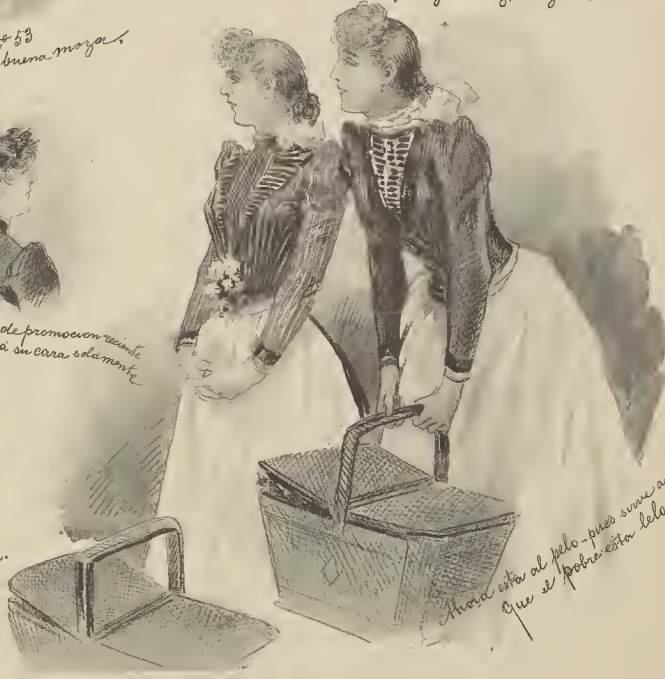 53
buena moza.
de promocion reciente
á su cara solamente
Ahora esta al pelo-pues sirve a
Que el pobre esta lelo